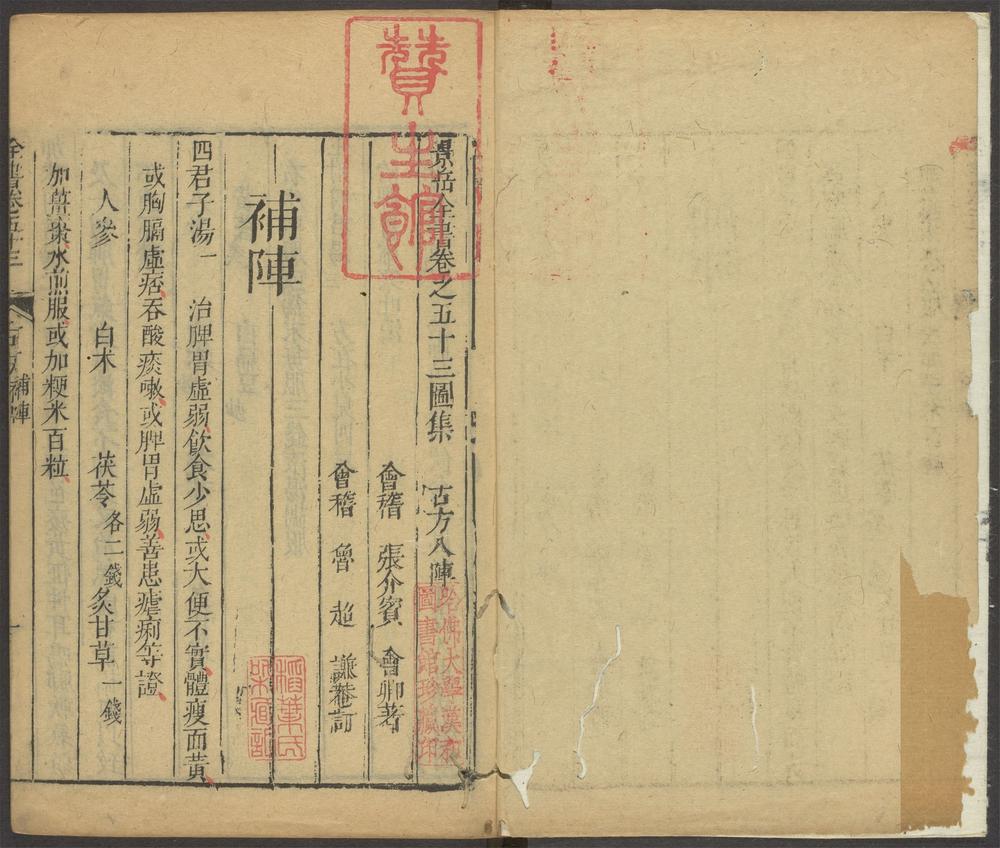 景岳全書卷之五十三圖集 古方八陣
會稽 張介賓 會卿著
會稽 魯 超 謙菴訂
補陣
四君子湯一 治脾胃虛弱飲食少思或大便不實體瘦面黃
或胸膈虛痞吞酸痰嗽或脾胃虛弱善患瘧痢等證
人參 白朮 茯苓各二錢 炙甘草一錢
加薑棗水煎服或加粳米百粒
全書卷之五十三 古方補陣 一
贊生館
哈佛大學漢和
圖書館珍藏印